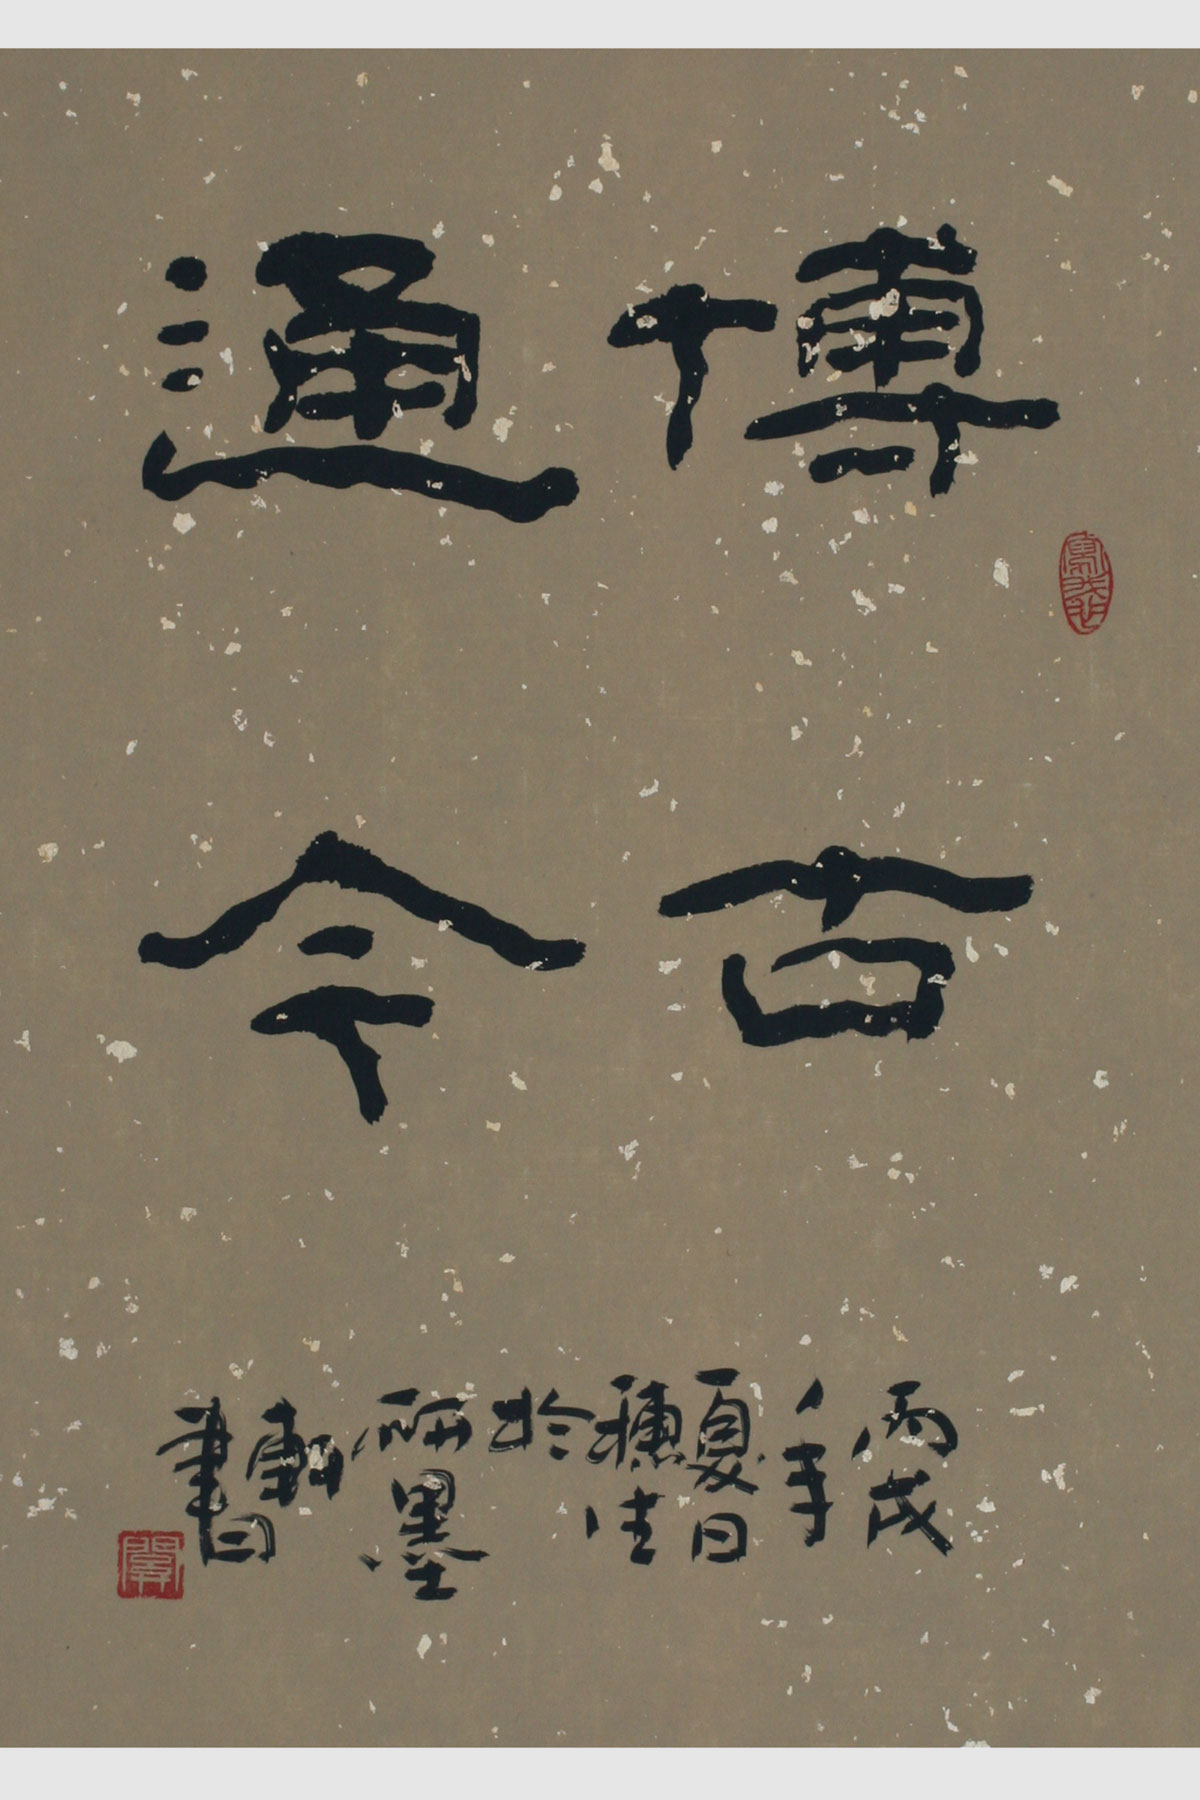 博古
通今
丙戌
年
夏日
穗生
於
研墨
軒
書